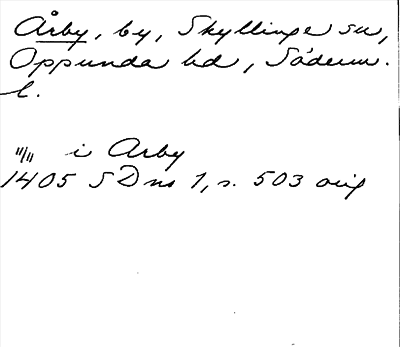 Årby, by, Skyllinge sn,
Oppunda hd, Söderm.
l.
"/11 i Arby
1405 SDns 1, s. 503 orig